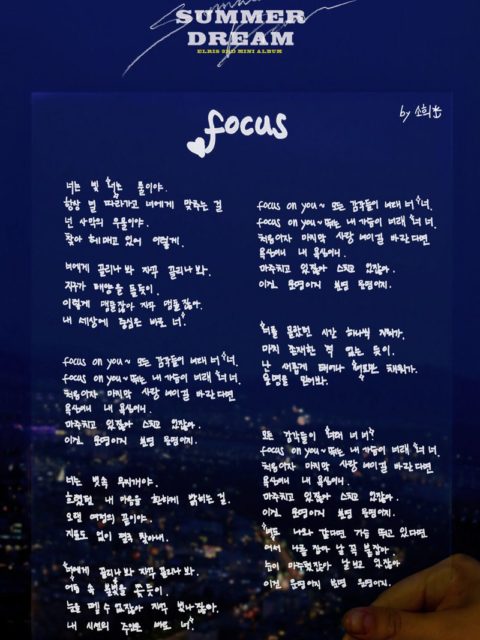 SUMMER
DREAM
ELRIS 3RD MINI ALBUM
focus
by 소희
너는 빛 너는 물이야.
항상 널 따라가고 너에게 맞추는 걸
넌 사막의 우물이야.
찾아 헤매고 있어 이렇게.
너에게 끌리나 봐 자꾸 끌리나 봐.
지구가 태양을 돌듯이.
이렇게 맴돌잖아 자꾸 맴돌잖아.
내 세상에 중심은 바로 너.
focus on you~ 모든 감각들이 너래 너 너.
focus on you~ 뛰는 내 가슴이 너래 너 너.
처음이자 마지막 사랑 너이길 바란다면
욕심이니 내 욕심이니.
마주치고 있잖아 스치고 있잖아.
이건 운명이지 분명 운명이지.
너는 빛속 무지개야.
흐렸던 내 마음을 환하게 밝히는 걸.
오랜 여정의 끝이야.
지도도 없이 널 찾아내.
너에게 끌리나 봐 자꾸 끌리나 봐.
어둠 속 불빛을 쫓듯이.
눈을 뗄 수 없잖아 자꾸 빛나잖아.
내 시선의 주인은 바로 너.
focus on you~ 모든 감각들이 너래 너 너.
focus on you~ 뛰는 내 가슴이 너래 너 너.
처음이자 마지막 사랑 너이길 바란다면
욕심이니 내 욕심이니.
마주치고 있잖아 스치고 있잖아.
이건 운명이지 분명 운명이지.
너를 몰랐던 시간 하나씩 지워가.
마치 존재한 적 없는 듯이.
난 새롭게 태어나 너로만 채워가.
운명을 믿어봐.
모든 감각들이 너래 너 너
focus on you~ 뛰는 내 가슴이 너래 너 너.
처음이자 마지막 사랑 너이길 바란다면
욕심이니 내 욕심이니.
마주치고 있잖아 스치고 있잖아.
이건 운명이지 분명 운명이지.
너도 나와 같다면 가슴 뛰고 있다면
어서 나를 잡아 날 꼭 붙잡아.
눈이 마주쳤잖아 날 보고 있잖아.
이건 운명이지 분명 운명이지.